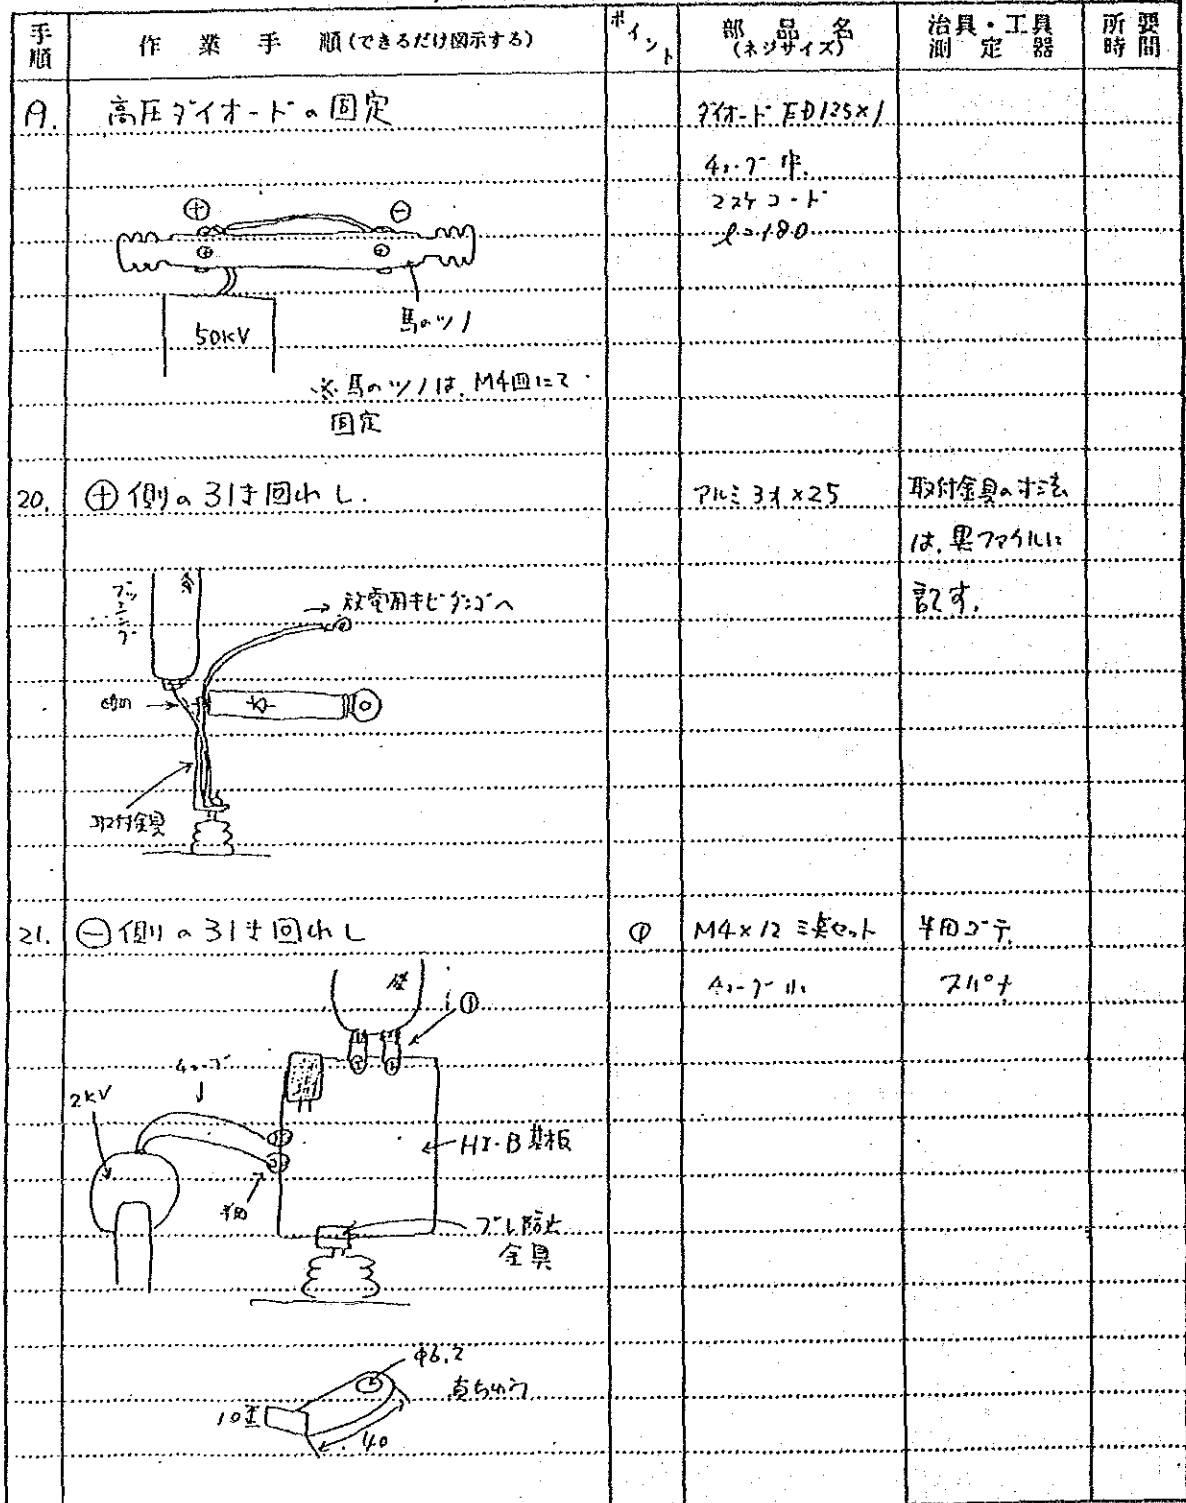 手順 作業手順(できるだけ図示する) ポイント 部品名(ネジサイズ) 治具・工具測定器 所要時間
19. 高圧ダイオードの固定 ダイオード ED125×1
コード
l=180
⊕ ⊖
50kV
馬のツノ
※馬のツノは、M4皿にて
固定
20. ⊕側の引き回わし.
アルミ 3t×25
取付金具の寸法
は、黒ファイルに
記す.
ブッシング
→放電用キビダンゴへ
取付金具
21. ⊖側の引き回わし ① M4×12 三点セット 半田ゴテ
チューブ 小 スパナ
①
チューブ
2kV
HI-B基板
半田
ブレ防止
金具
φ6.2
真ちゅう
10
40